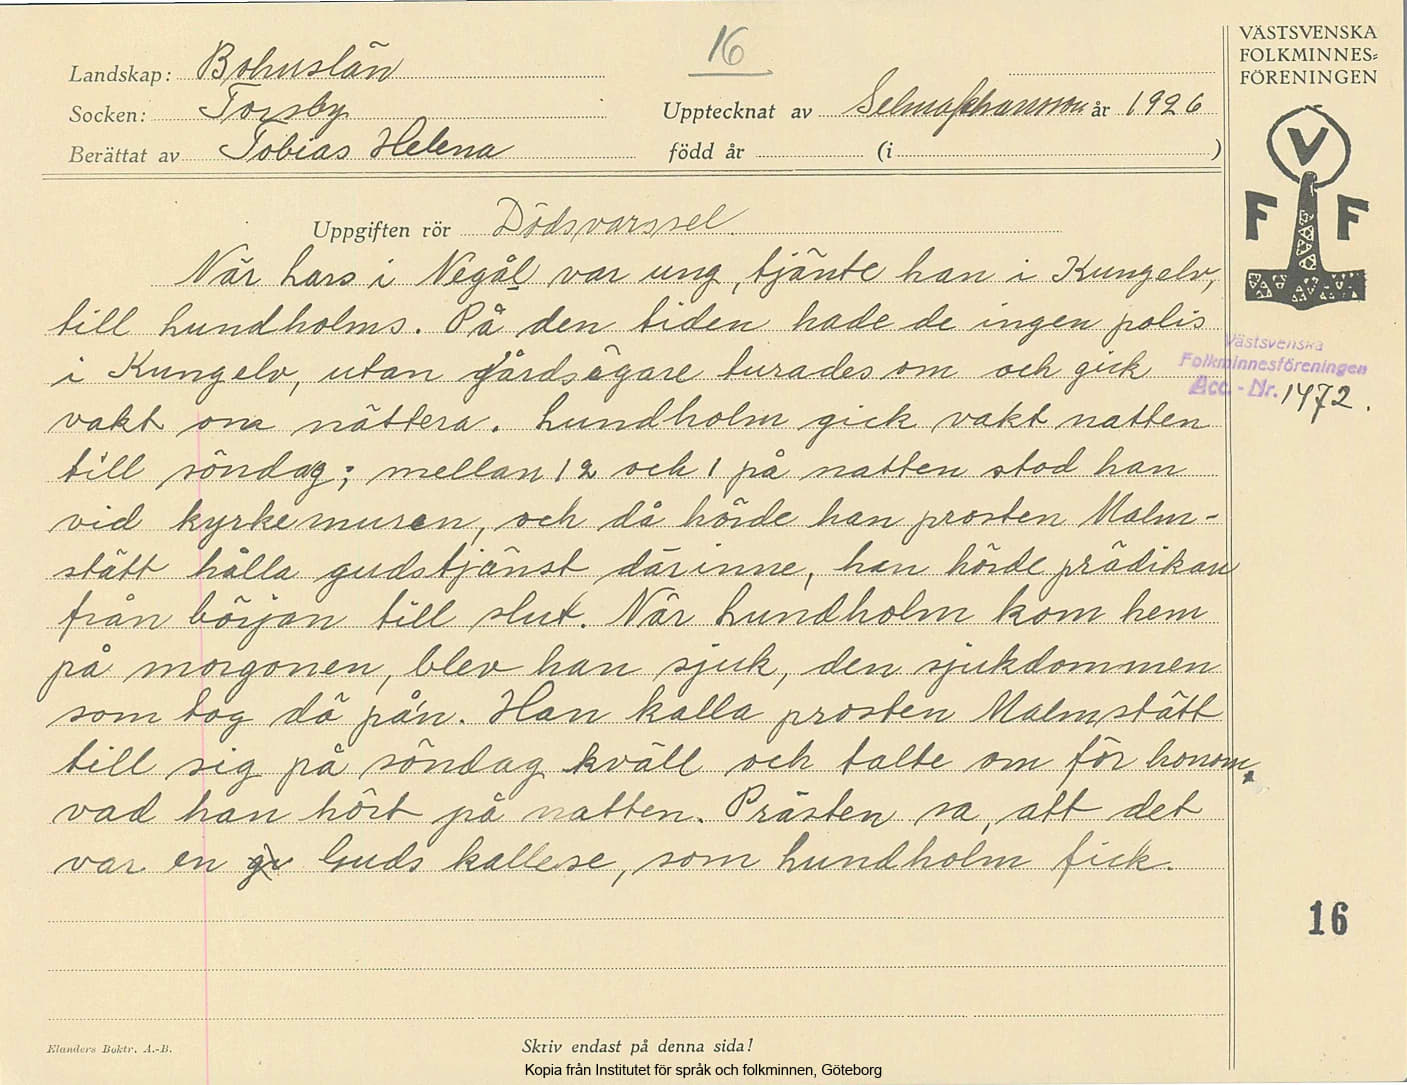 16
VÄSTSVENSKA
FOLKMINNES=
FÖRENINGEN
Landskap: Bohuslän
Socken: Torsby
Upptecknat av Selma Johansson år 1926
Berättat av Tobias Helena
född år (i )
V
F F
Uppgiften rör Dödsvarssel.
När Lars i Negål var ung, tjänte han i Kungelv,
till Lundholms. På den tiden hade de ingen polis
Västsvenska
Folkminnesföreningen
Acc.-Nr. 1472.
i Kungelv, utan gårdsägare turades om och gick
vakt om nättera. Lundholm gick vakt natten
till söndag; mellan 12 och 1 på natten stod han
vid kyrkemuren, och då hörde han prosten Malm-
stätt hålla gudstjänst därinne, han hörde prädikan
från början till slut. När Lundholm kom hem
på morgonen, blev han sjuk, den sjukdommen
som tog dä på'n. Han kalla prosten Malmstätt
till sig på söndag kväll och talte om för honom,
vad han hört på natten. Prästen sa, att det
var en Guds kallese, som Lundholm fick.
16
Elanders Boktr. A.-B.
Skriv endast på denna sida!
Kopia från Institutet för språk och folkminnen, Göteborg